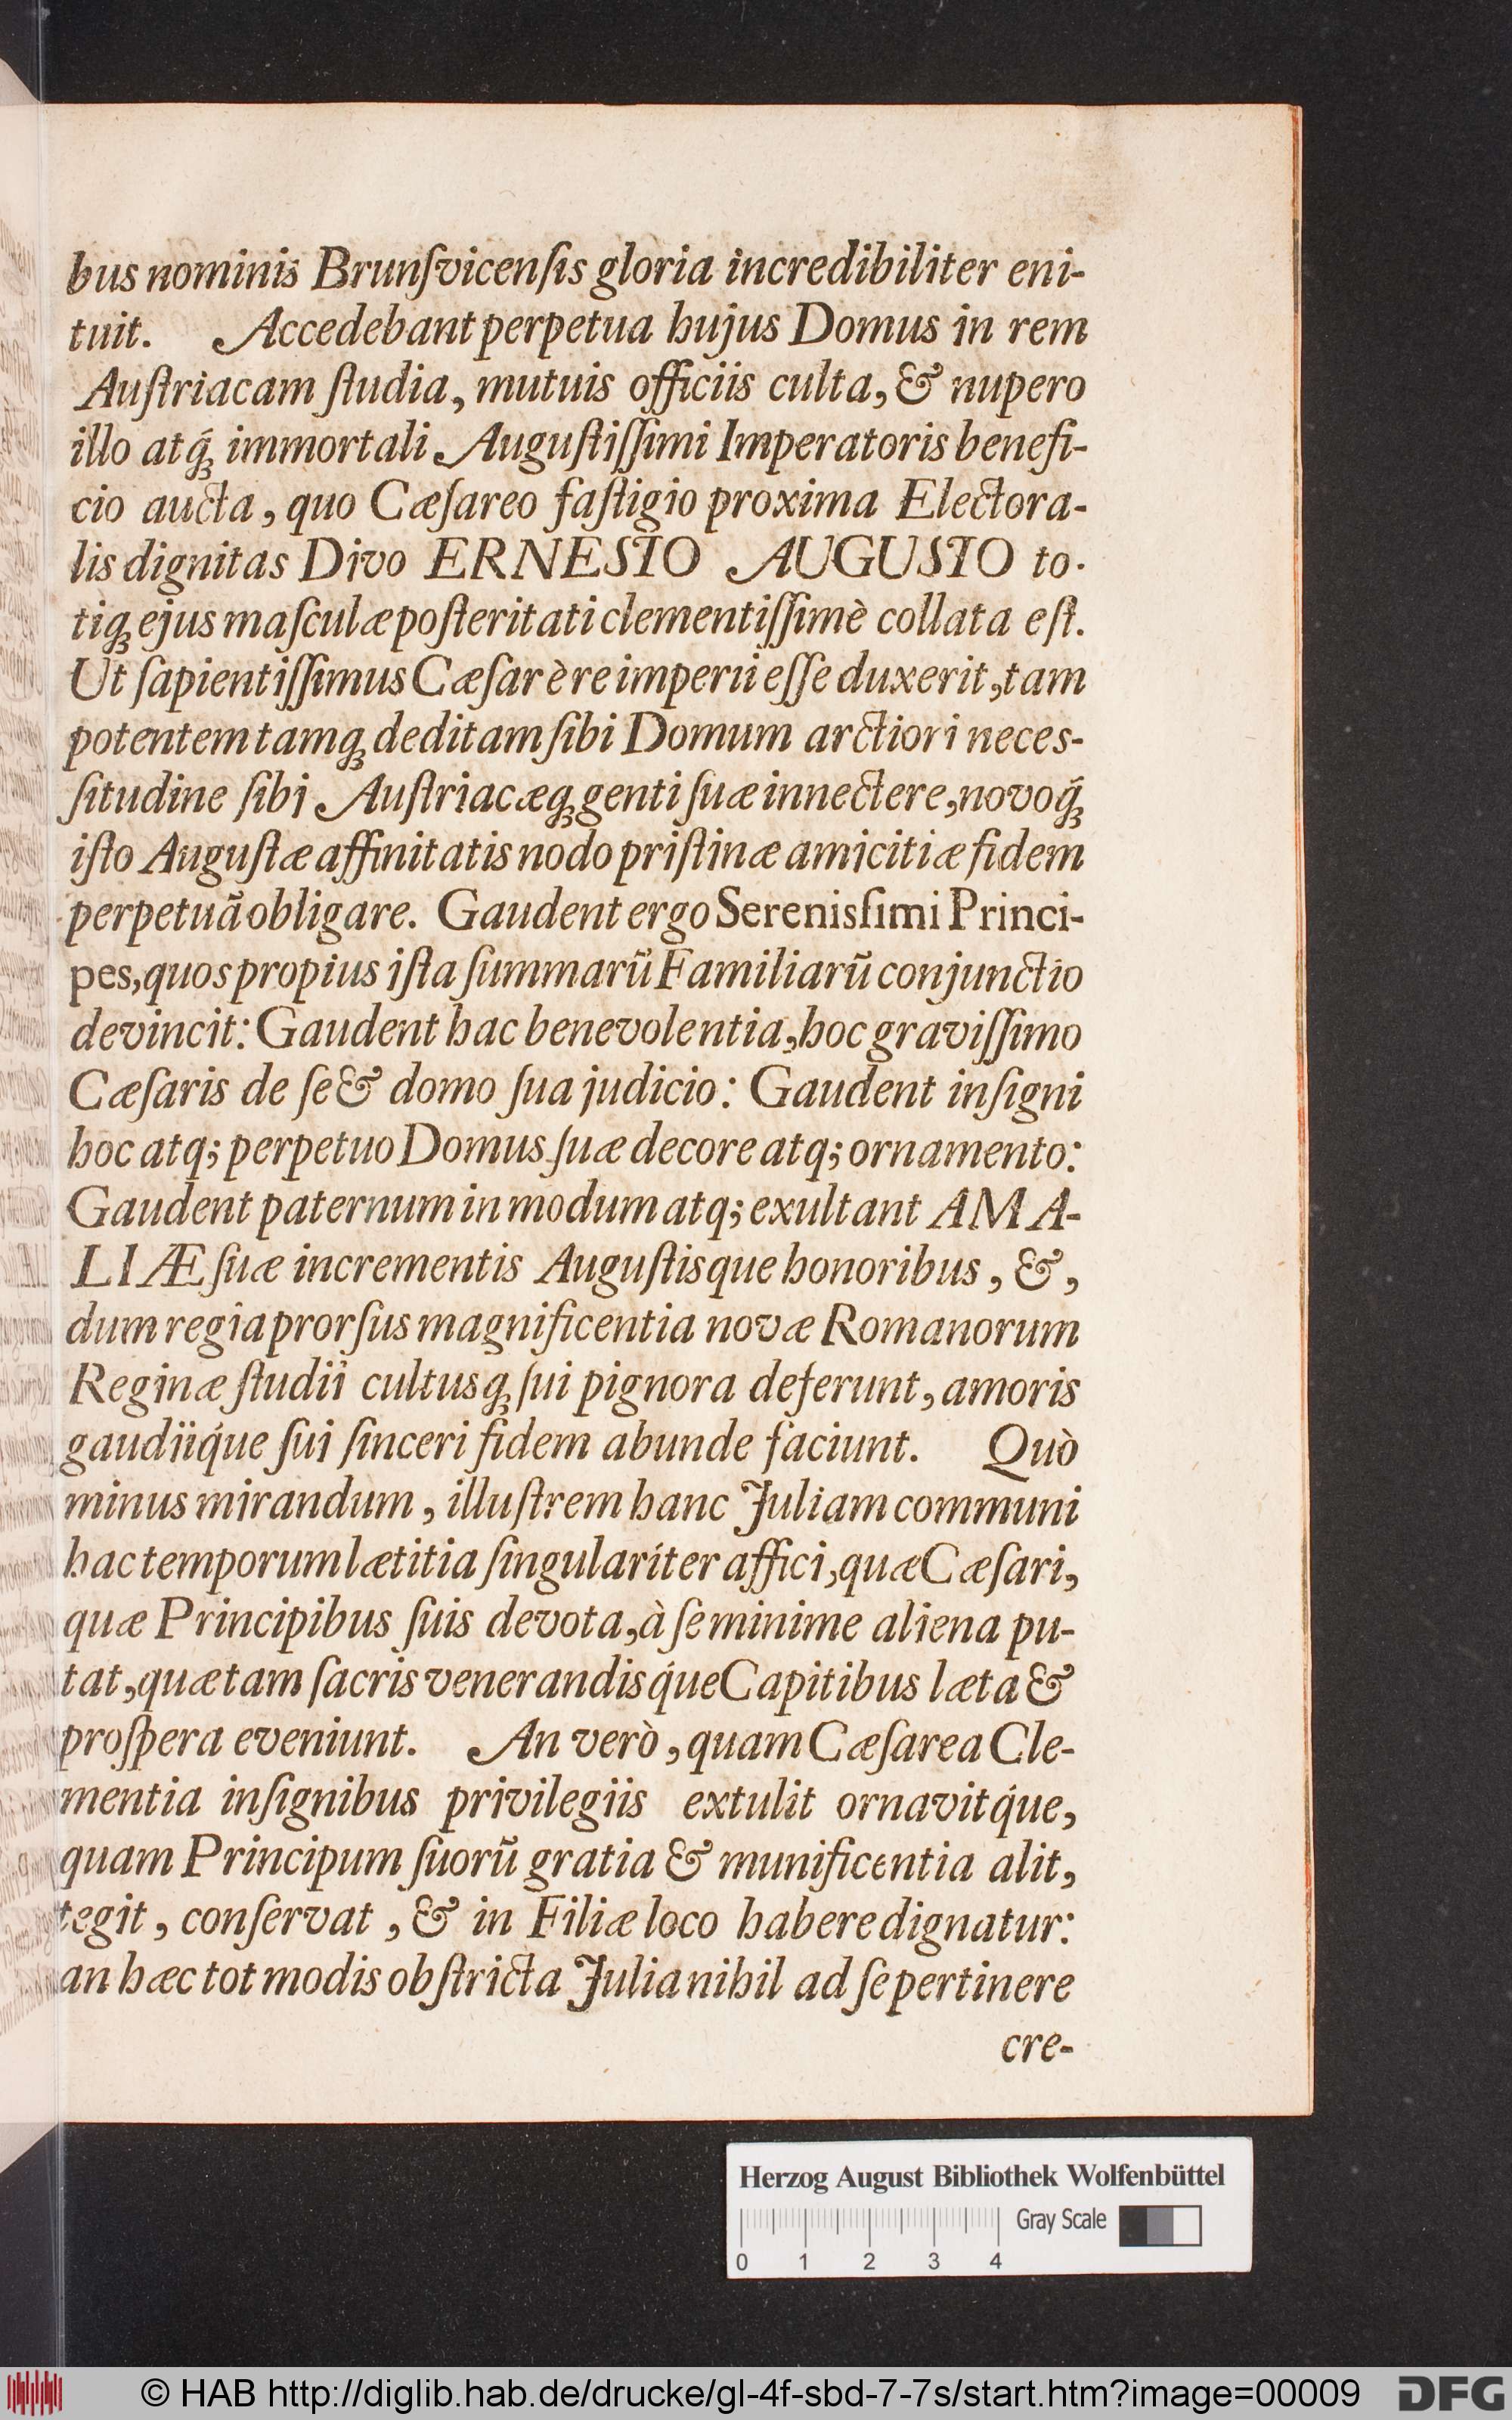 bus nominis Brunſvicenſis gloria incredibiliter eni-
tuit. Accedebant perpetua hujus Domus in rem
Auſtriacam ſtudia, mutuis officiis culta, & nupero
illo atq́ꝫ immortali Auguſtiſſimi Imperatoris benefi-
cio aucta, quo Cæſareo faſtigio proxima Electora-
lis dignitas Divo ERNESTO AUGUSTO to-
tiqꝫ ejus maſculæ poſteritati clementiſſimè collata eſt.
Ut ſapientiſſimus Cæſar è re imperii eſſe duxerit, tam
potentem tamqꝫ deditam ſibi Domum arctiori neces-
ſitudine ſibi Auſtriacæqꝫ genti ſuæ innectere, novoq́ꝫ
iſto Auguſtæ affinitatis nodo priſtinæ amicitiæ fidem
perpetuā obligare. Gaudent ergo Serenisſimi Princi-
pes, quos propius iſta ſummarū Familiarū conjunctio
devincit: Gaudent hac benevolentia, hoc graviſſimo
Cæſaris de ſe & domo ſua judicio: Gaudent inſigni
hoc atq; perpetuo Domus ſuæ decore atq; ornamento:
Gaudent paternum in modum atq; exultant AMA-
LIÆ ſuæ incrementis Auguſtisque honoribus, &,
dum regia prorſus magnificentia novæ Romanorum
Reginæ ſtudii cultusqꝫ ſui pignora deferunt, amoris
gaudiiq́ue ſui ſinceri fidem abunde faciunt. Quò
minus mirandum, illuſtrem hanc Juliam communi
hac temporum lætitia ſingulariter affici, quæ Cæſari,
quæ Principibus ſuis devota, à ſe minime aliena pu-
tat, quæ tam ſacris venerandisq́ue Capitibus læta &
proſpera eveniunt. An verò, quam Cæſarea Cle-
mentia inſignibus privilegiis extulit ornavitq́ue,
quam Principum ſuorū gratia & munificentia alit,
tegit, conſervat, & in Filiæ loco habere dignatur:
an hæc tot modis obſtricta Julia nihil ad ſe pertinere
cre-
Herzog August Bibliothek Wolfenbüttel
Gray Scale
0 1 2 3 4
© HAB http://diglib.hab.de/drucke/gl-4f-sbd-7-7s/start.htm?image=00009
DFG